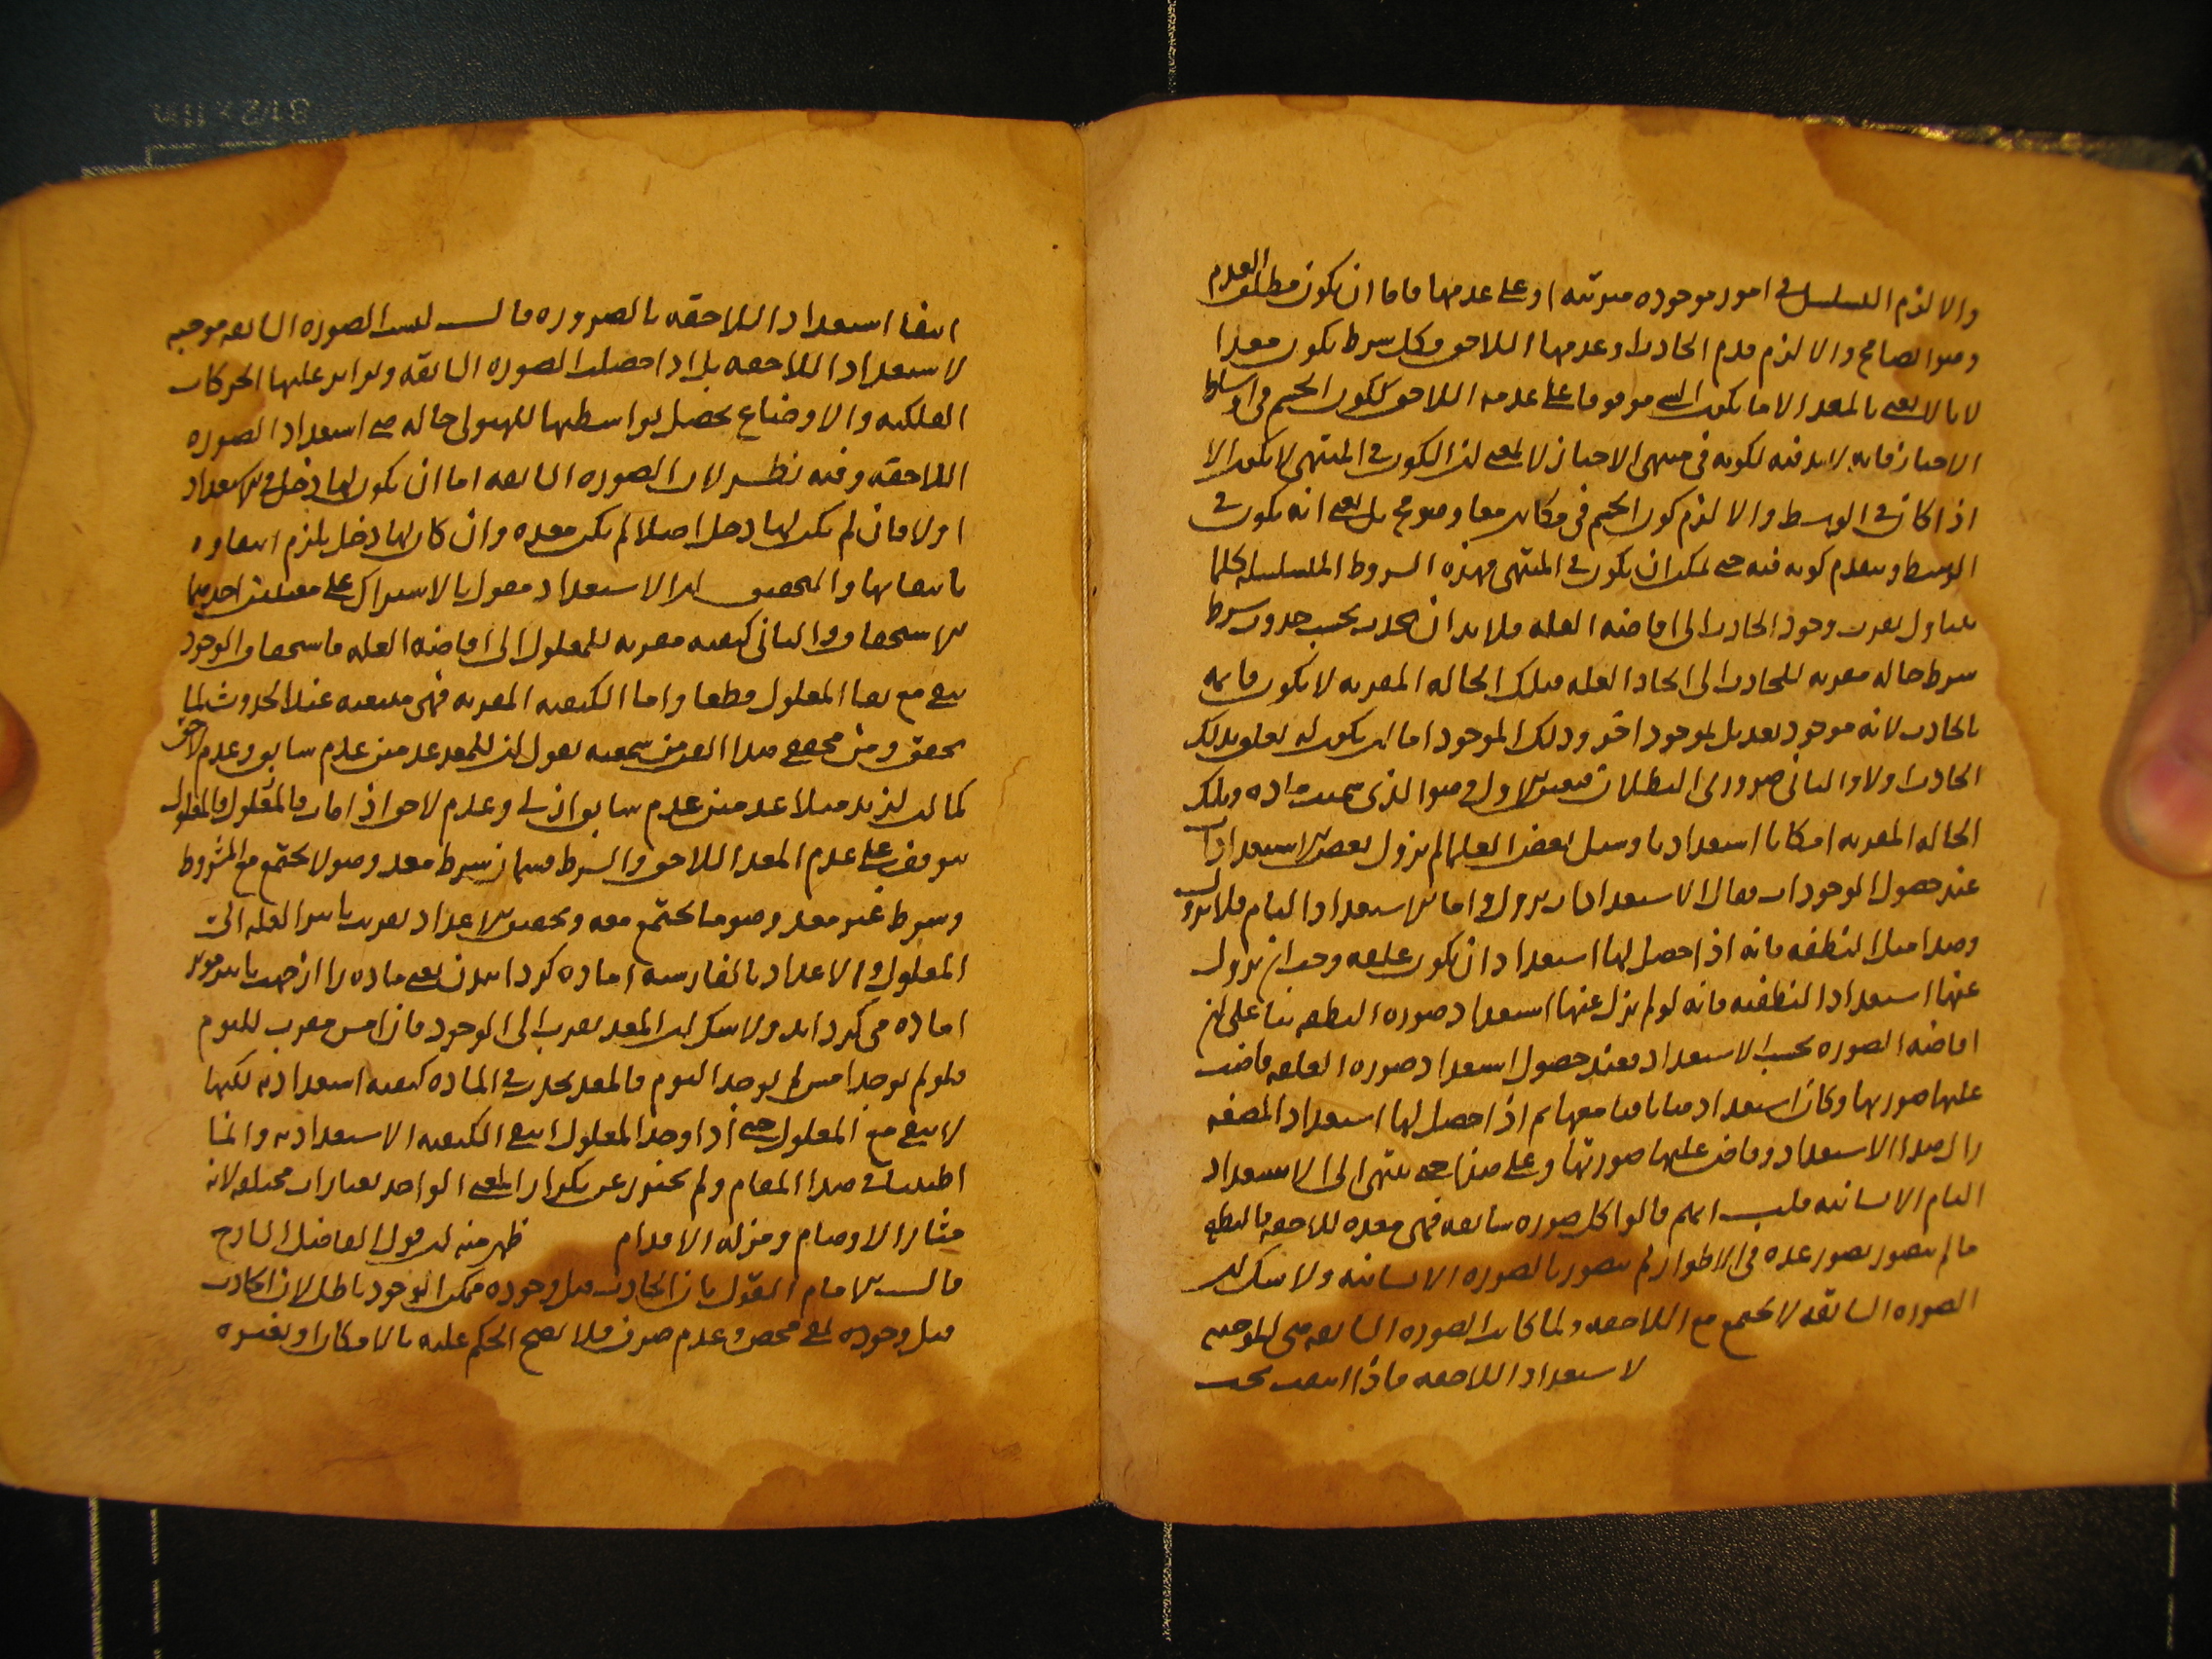 والا لزم التسلسل فى امور موجوده مترتبه او على عدمها فاما ان يكون مطلق العدم
وهو ايضا مح والا لزم قدم الحادث او عدمها اللاحق وكل شرط يكون معدا
لانا لا نعنى بالمعد الا ما يكون الشى موقوفا على عدمه اللاحق ككون الجسم فى اوساط
الاحياز فانه لابد فيه لكونه فى منتهى الاحياز لا بمعنى ان الكون فى المنتهى لا يكون الا
اذا كان فى الوسط والا لزم كون الجسم فى مكانين معا وهو مح بل بمعنى انه يكون فى
الوسط وينعدم كونه فيه حتى يمكن ان يكون فى المنتهى فهذه الشروط المتسلسله كلما
تتناول يقرب وجود الحادث الى افاضه العله فلابد ان يحدث بحسب حدوث شرط
شرط حاله مقربه للحادث الى ايجاد العله فتلك الحاله المقربه لا تكون قائمه
بالحادث لانه موجود بعد بل بموجود اخر وذلك الموجود اما ان يكون له تعلق بذلك
الحادث اولا والثانى ضرورى البطلان فتعين الاول وهو الذى سميت ماده وتلك
الحاله المقربه امكانا استعداديا وسيل بعض العلما لم يزول بعض الاستعدادات
عند حصول الموجودات فقال الاستعدادات تزول واما الاستعداد التام فلا يزول
وهذا مثل النطفه فانه اذا حصل لها استعداد ان يكون علقه وجب ان يزول
عنها استعداد النطفيه فانه لو لم يزل عنها استعداد صوره النطفه بنا على ان
افاضه الصوره بحسب الاستعداد فعند حصول استعداد صوره العلقه فاضت
عليها صورتها وكان استعدادها باقيا معها ثم اذا حصل لها استعداد المضغه
زال هذا الاستعداد وفاض عليها صورتها وعلى هذا حتى ينتهى الى الاستعداد
التام الانسانيه قلت انهم قالوا كل صوره سابقه فهى معده للاحقه فالنطفه
ما لم يتصور بصور عده فى الاطوار لم يتصور بالصوره الانسانيه ولا شك ان
الصوره السابقه لا تجتمع مع اللاحقه ولما كانت الصوره السابقه هى الموجبه
لاستعداد اللاحقه فاذا انتفت يجب
انتفا استعداد اللاحقه بالضروره قالت ليست الصوره السابقه موجبه
لاستعداد اللاحقه بل اذا حصلت الصوره السابقه وتوارد عليها الحركات
الفلكيه والاوضاع يحصل بواسطتها للهيولى حاله هى استعداد الصوره
اللاحقه وفيه نظر لان الصوره السابقه اما ان يكون لها دخل فى الاستعداد
اولا فان لم يكن لها دخل اصلا لم يكن معده وان كان لها دخل يلزم انتفاوه
بانتفائها والتحقيق ان الاستعداد مقول بالاشتراك على معنيين احدهما
الاستحقاق والثانى كيفيه مقربه للمعلول الى افاضه العله فاستحقاق الوجود
يبقى مع بقا المعلول قطعا واما الكيفيه المقربه فهى منتفيه عند الحدوث لما
تحقق ومن تحقيق هذا الفرق سمعته يقول ان للمعد عدمين عدم سابق وعدم لاحق
كما ان لزيد مثلا عدمين عدم سابق ازلى وعدم لاحق اذا مات فالمعلول
يتوقف على عدم المعد اللاحق والشرط قسمان شرط معد وهو لا يجتمع مع المشروط
وشرط غير معد وهو ما يجتمع معه وتحقيق الاعداد تقريب تاثير العله الى
المعلول والاعداد بالفارسيه اماده كردانيدن يعنى ماده را از جهت تاثير موثر
اماده مى كرداند ولا شك ان المعد يقرب الى الوجود فان امس مقرب لليوم
فلو لم يوجد امس لم يوجد اليوم فالمعد يحدث فى الماده كيفيه استعداديه لكنها
لا تبقى مع المعلول حتى اذا وجد المعلول انتفى الكيفيه الاستعداديه وانما
اطنبت فى هذا المقام ولم نحترز عن تكرار المعنى الواحد بعبارات مختلفه لانه
مثار الاوهام ومزله الاقدام ظهر منه ان قول الفاضل الشارح
قالت الامام القول بان الحادث قبل وجوده ممكن الوجود باطل لان الحادث
قبل وجوده نفى محض وعدم صرف فلا يصح الحكم عليه بالامكان وبغيره